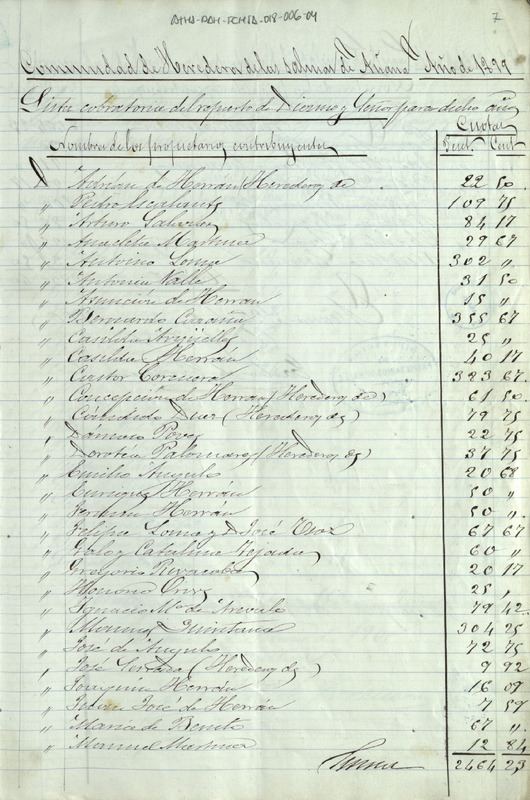 ATHA-DAH-FCMSA-018-006-04
7
Comunidad de Herederos de las Salinas de Añana Año de 1899
Lista cobratoria del reparto de Diezmo y Señor para dicho año
Cuotas
Nombres de los propietarios contribuyentes Peset. Cent.
D. Adrian de Herrán (Herederos de 22 50
" Pedro Escalante 109 75
" Arturo 84 17
" Anacleta Martinez 29 67
" Antonino Loma 302 "
" Antonia Valle 31 50
" Asunción de Herran 15 "
" Bernardo 355 67
" Casilda Argüello 25 "
" Casilda Herrán 40 17
" Castor Corcuera 323 67
" Concepcion de Herran (Herederos de) 61 50
" Cándido Diez (Herederos de) 79 75
" Dámaso Pove 22 75
" Dorotea Palomares (Herederos de) 37 75
" Emilio Angulo 20 68
" Enrique Herrán 50 "
" Fermin Herrán 50 "
" Felipe Loma y D. José Ozaz 67 67
" y Catalina Tejada 60 "
" Gregorio 20 17
" Honorio Oribe 25 "
" Ignacio Mª de Arevalo 79 42
" Quintana 304 25
" José de Angulo 72 75
" José (Herederos de) 9 92
" Joaquina Herrán 16 09
" José de Herrán 7 59
" Maria de Benito 67 "
" Manuel Martinez 12 84
Suma 2464 23